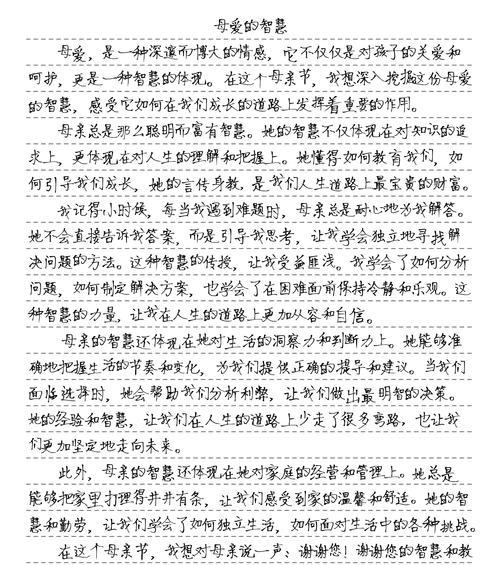 母爱的智慧
母爱，是一种深邃而博大的情感，它不仅仅是对孩子的关爱和
呵护，更是一种智慧的体现。在这个母亲节，我想深入挖掘这份母爱
的智慧，感受它如何在我们成长的道路上发挥着重要的作用。
母亲总是那么聪明而富有智慧。她的智慧不仅体现在对知识的追
求上，更体现在对人生的理解和把握上。她懂得如何教育我们，如
何引导我们成长，她的言传身教，是我们人生道路上最宝贵的财富。
我记得小时候，每当我遇到难题时，母亲总是耐心地为我解答。
她不会直接告诉我答案，而是引导我思考，让我学会独立地寻找解
决问题的方法。这种智慧的传授，让我受益匪浅。我学会了如何分析
问题，如何制定解决方案，也学会了在困难面前保持冷静和乐观。这
种智慧的力量，让我在人生的道路上更加从容和自信。
母亲的智慧还体现在她对生活的洞察力和判断力上。她能够准
确地把握生活的节奏和变化，为我们提供正确的指导和建议。当我们
面临选择时，她会帮助我们分析利弊，让我们做出最明智的决策。
她的经验和智慧，让我们在人生的道路上少走了很多弯路，也让我
们更加坚定地走向未来。
此外，母亲的智慧还体现在她对家庭的经营和管理上。她总是
能够把家里打理得井井有条，让我们感受到家的温馨和舒适。她的智
慧和勤劳，让我们学会了如何独立生活，如何面对生活中的各种挑战。
在这个母亲节，我想对母亲说一声：谢谢您！谢谢您的智慧和教